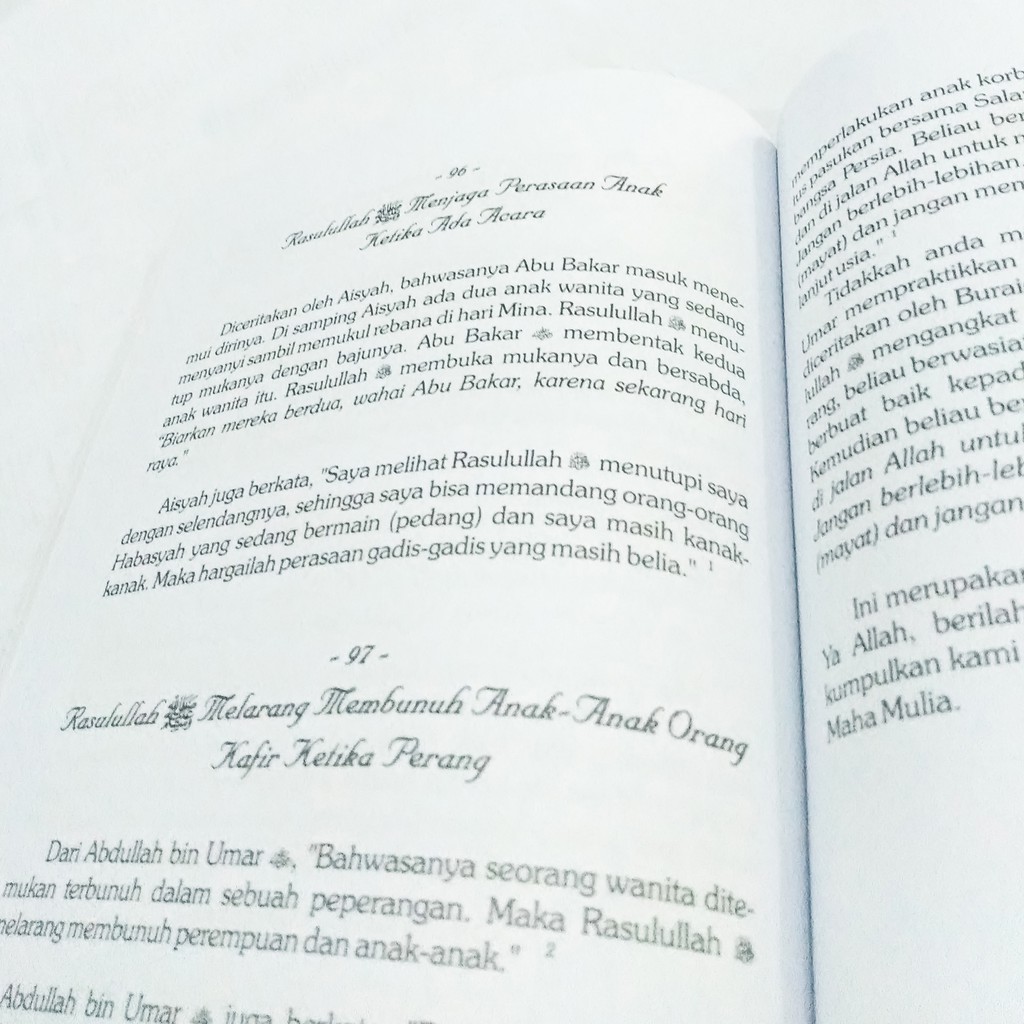 - 96 -
Rasulullah ﷺ Menjaga Perasaan Anak
Ketika Ada Acara
Diceritakan oleh Aisyah, bahwasanya Abu Bakar masuk mene-
mui dirinya. Di samping Aisyah ada dua anak wanita yang sedang
menyanyi sambil memukul rebana di hari Mina. Rasulullah ﷺ menu-
tup mukanya dengan bajunya. Abu Bakar membentak kedua
anak wanita itu. Rasulullah ﷺ membuka mukanya dan bersabda,
"Biarkan mereka berdua, wahai Abu Bakar, karena sekarang hari
raya."
Aisyah juga berkata, "Saya melihat Rasulullah ﷺ menutupi saya
dengan selendangnya, sehingga saya bisa memandang orang-orang
Habasyah yang sedang bermain (pedang) dan saya masih kanak-
kanak. Maka hargailah perasaan gadis-gadis yang masih belia." 1
- 97 -
Rasulullah ﷺ Melarang Membunuh Anak-Anak Orang
Kafir Ketika Perang
Dari Abdullah bin Umar , "Bahwasanya seorang wanita dite-
mukan terbunuh dalam sebuah peperangan. Maka Rasulullah ﷺ
melarang membunuh perempuan dan anak-anak." 2
Abdullah bin Umar juga
memperlakukan anak korb
tus pasukan bersama Sala
bangsa Persia. Beliau ber
dan di jalan Allah untuk m
Jangan berlebih-lebihan,
(mayat) dan jangan mem
lanjut usia." 1
Tidakkah anda m
Umar mempraktikkan
diceritakan oleh Burai
lullah ﷺ mengangkat
rang, beliau berwasia
berbuat baik kepad
Kemudian beliau be
di jalan Allah untu
Jangan berlebih-leb
(mayat) dan jangan
Ini merupaka
Ya Allah, berilah
kumpulkan kami
Maha Mulia.